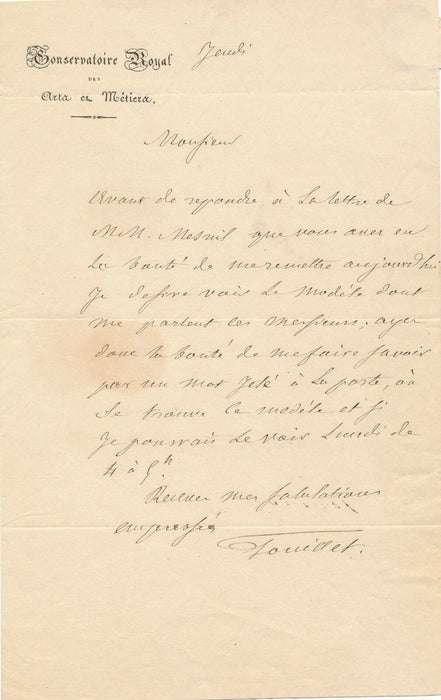 Conservatoire Royal
DES
Arts et Métiers.
Jeudi
Monsieur
Avant de repondre à la lettre de
MM. Mesnil que vous avez eu
la bonté de me remettre aujourd'hui
Je desire voir le modèle dont
me parlent ces messieurs; ayez
donc la bonté de me faire savoir
par un mot jeté à la poste, où
se trouve ce modèle et si
je pourrais le voir Lundi de
4 à 5h.
Recevez mes salutations
empressées
Pouillet.